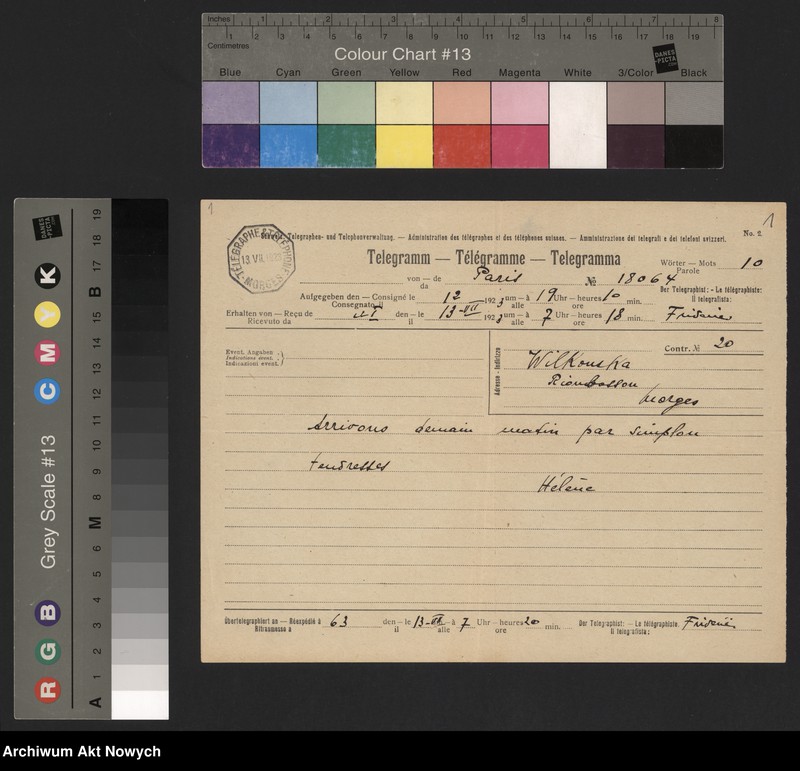 Inches 1 2 3 4 5 6 7 8
Centimetres 1 2 3 4 5 6 7 8 9 10 11 12 13 14 15 16 17 18 19
Colour Chart #13
DANES-PICTA
Blue Cyan Green Yellow Red Magenta White 3/Color Black
DANES-PICTA
Grey Scale #13
R G B C M Y K
A 1 2 3 4 5 6 M 8 9 10 11 12 13 14 15 B 17 18 19
1
1
TÉLÉGRAPHE & TÉLÉPHONE
13 VII
MORGES
Telegraphen- und Telephonverwaltung. — Administration des télégraphes et des téléphones suisses. — Amministrazione dei telegrafi e dei telefoni svizzeri.
No. 2.
Telegramm — Télégramme — Telegramma
Wörter — Mots 10
Parole
von — de Paris № 18064
da
Der Telegraphist: - Le télégraphiste:
Il telegrafista:
Aufgegeben den — Consigné le 12 192 3 um — à 19 Uhr — heures 10 min.
Consegnato il alle ore
Erhalten von — Reçu de den — le 13-VII 192 3 um — à 7 Uhr — heures 18 min.
Ricevuto da il alle ore
Event. Angaben
Indications event.
Indicazioni event.
Adresse - Indirizzo
Contr. № 20
Wilkonska
Morges
Arrivons demain matin par simplon
tendresses
Hélène
Übertelegraphiert an — Réexpédié à 63 den — le 13-VII à 7 Uhr — heures 20 min.
Ritrasmesso a il alle ore
Der Telegraphist: — Le télégraphiste.
Il telegrafista:
Archiwum Akt Nowych